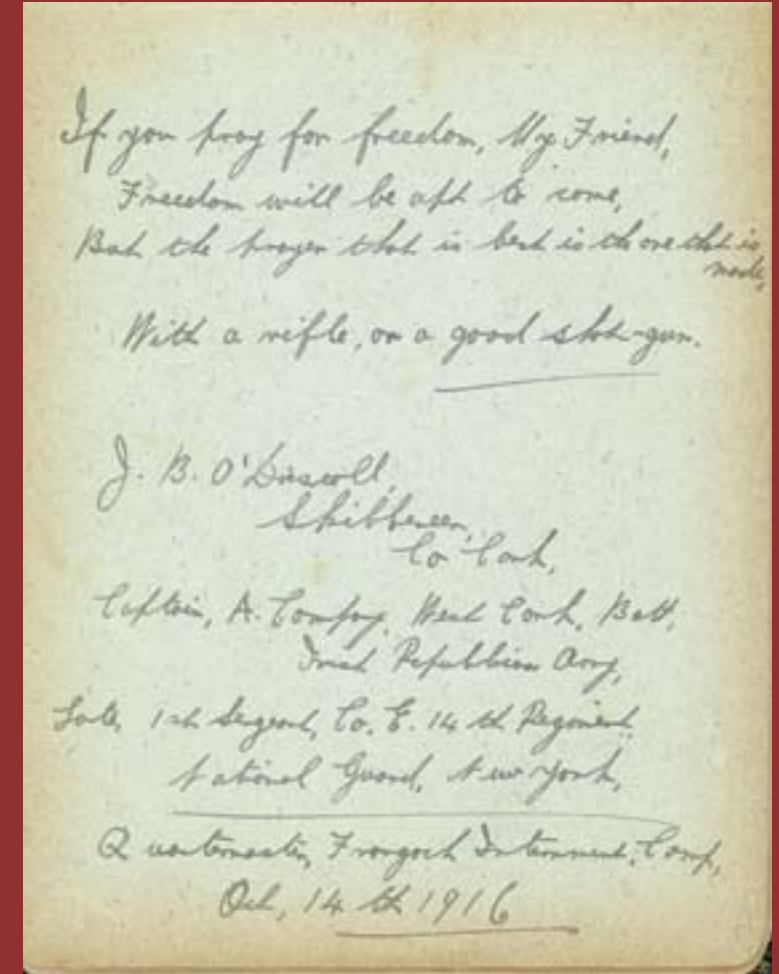 If you pray for freedom, My Friend,
Freedom will be apt to come,
But the prayer that is best is the one that is
made,
With a rifle, or a good shot-gun.
J. B. O'Driscoll,
Skibbereen,
Co Cork,
Captain, A. Company, West Cork, Batt,
Irish Republican Army,
Late, 1st Sergeant, Co. E. 14th Regiment,
National Guard, New York,
Quartermaster, Frongoch Internment, Camp,
Oct, 14th 1916